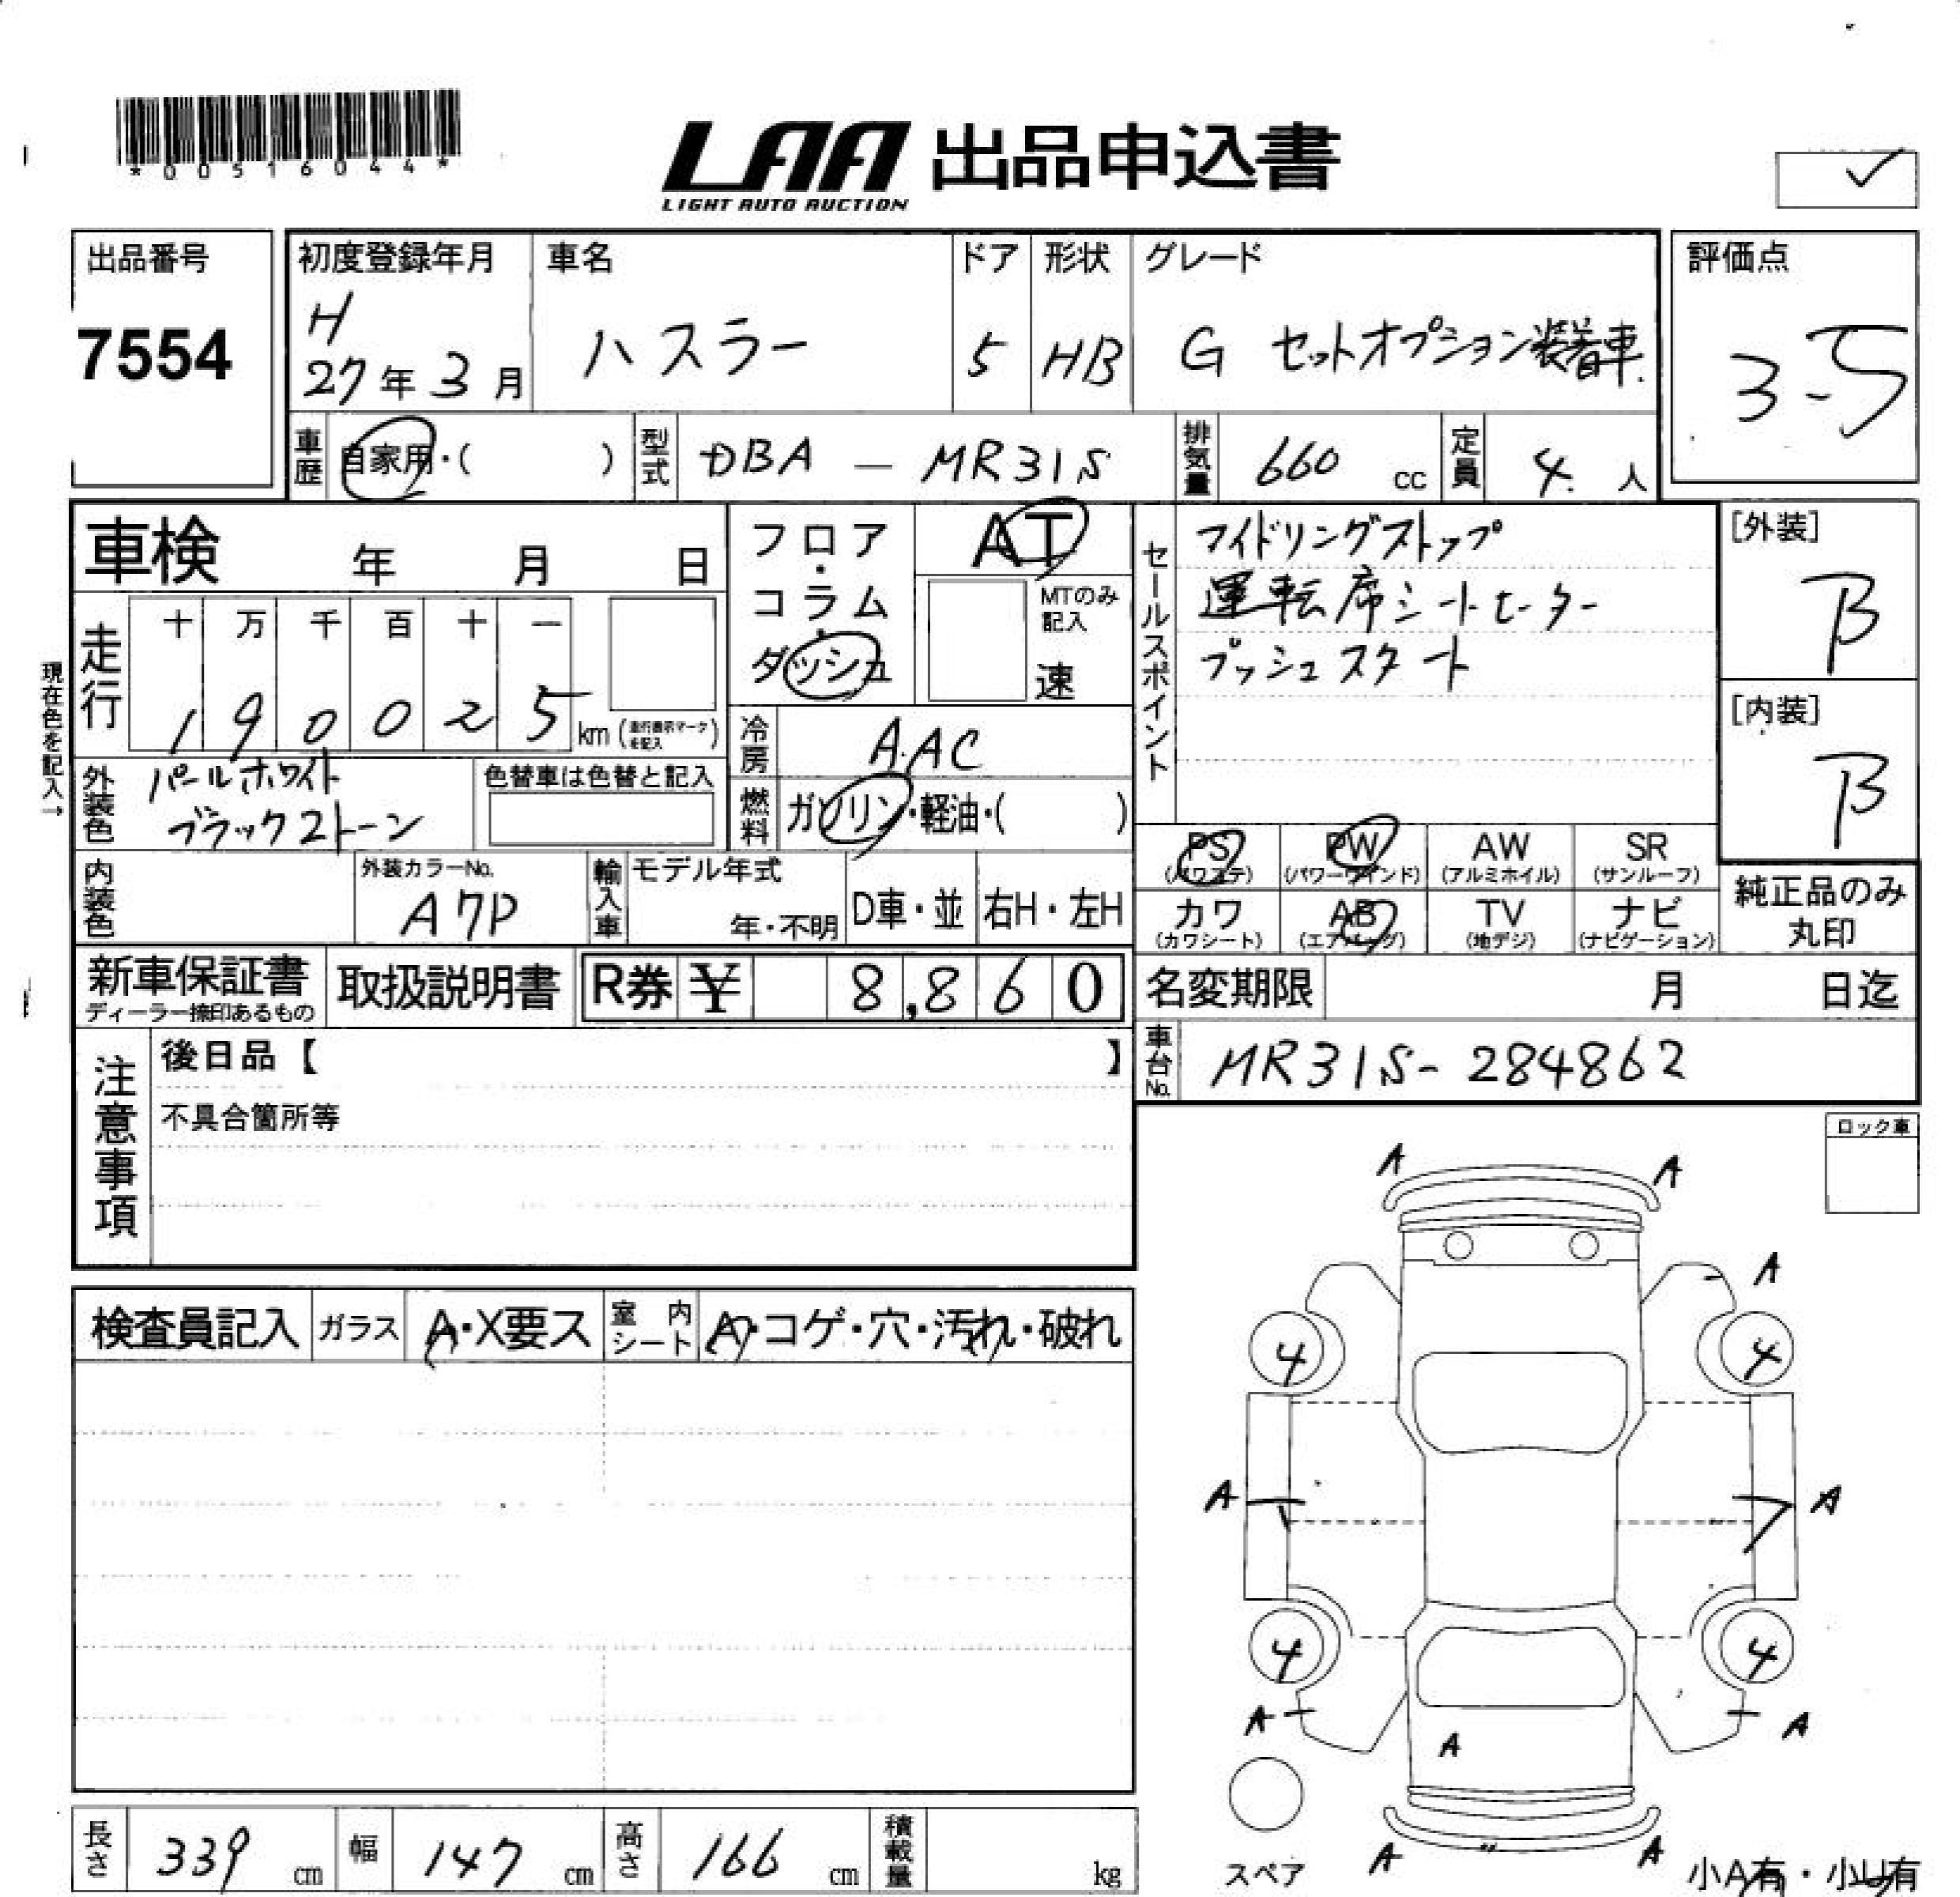 *00516044*
LAA 出品申込書
LIGHT AUTO AUCTION
出品番号
7554
初度登録年月
H
27年 3月
車名
ハスラー
ドア
5
形状
HB
グレード
G セットオプション装着車
評価点
3-5
車歴
自家用・( )
型式
DBA — MR31S
排気量
660 cc
定員
4 人
車検 年 月 日
走行
十 万 千 百 十 一
1 9 0 0 2 5 km (走行表示マークを記入)
現在色を記入→
外装色
パールホワイト
ブラック2トーン
色替車は色替と記入
内装色
外装カラーNo.
A7P
フロア・
コラム・
ダッシュ
AT
MTのみ
記入
速
冷房
AAC
燃料
ガソリン・軽油・( )
輸入車
モデル年式
年・不明
D車・並
右H・左H
セールスポイント
アイドリングストップ
運転席シートヒーター
プッシュスタート
[外装]
B
[内装]
B
PS
(パワステ)
PW
(パワーウインド)
AW
(アルミホイル)
SR
(サンルーフ)
カワ
(カワシート)
AB
(エアバッグ)
TV
(地デジ)
ナビ
(ナビゲーション)
純正品のみ
丸印
新車保証書
ディーラー捺印あるもの
取扱説明書
R券 ¥ 8,860
名変期限 月 日迄
車台No.
MR31S-284862
注意事項
後日品【 】
不具合箇所等
ロック車
検査員記入
ガラス
A・X要ス
室内シート
A・コゲ・穴・汚れ・破れ
A A
A
4 4
A A
4 4
A A
A
A A
スペア
小A有・小U有
長さ
339 cm
幅
147 cm
高さ
166 cm
積載量
kg